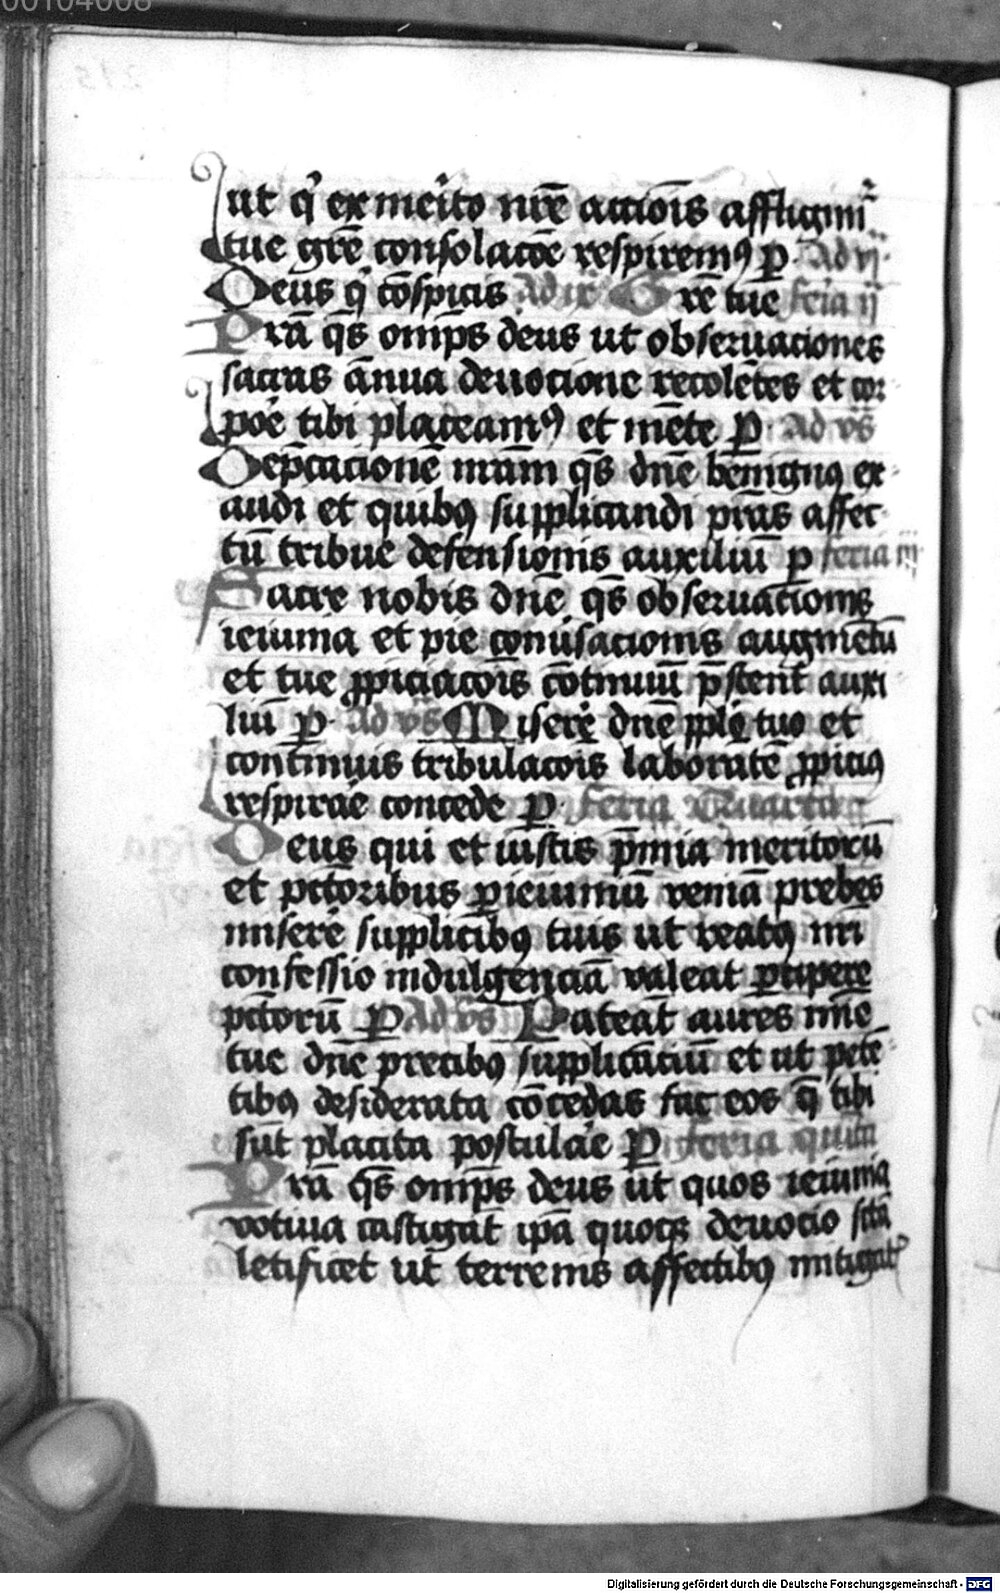 00104008
ut qͥ ex meͥto nr̄e acciōis affligimͬ
tue gr̄e consolacōe respiremꝰ ꝑ Ad vj
Deus qͥ cōspicis Ad ix Gr̄e tue feria ij
Prā qs̄ omīps deus ut obseruaciones
sacras annua deuocione recolētes et cor
poͤe tibi placeamꝰ et mēte ꝑ Ad vs̄
Dep̄cacionē nr̄am qs̄ dn̄e benignꝰ ex
audi et quibꝰ supplicandi pr̄as affec
tū tribue defensionis auxiliū ꝑ feria iij
Sacre nobis dn̄e qs̄ obseruacionis
ieiunia et pie conūsacionis augmētū
et tue ꝓpiciacōis cōtinuū p̄stent auxi
liū ꝑ Ad vs̄ Miserē dn̄e pplo tuo et
continuis tribulacōis laborātē ꝓpiciꝰ
respiraͤe concede ꝑ feria quarta
Deus qui et iustis p̄mia meritorū
et pctōribus ꝑ ieiuniū veniā prebes
miserē supplicibꝰ tuis ut reatꝰ nr̄i
confessio indulgenciā valeat ꝑcipere
pctōrū ꝑ Ad vs̄ Pateāt aures mīe
tue dn̄e precibꝰ supplicāciū et ut petē
tibꝰ desiderata cōcedas fac eos q̄ tibi
sūt placita postulāe ꝑ feria quīta
Prā qs̄ omīps deus ut quos ieiunia
votiua castigāt ip̄a quoqꝫ deuocio sc̄ā
letificet ut terrenis affectibꝰ mitigatꝭ
Digitalisierung gefördert durch die Deutsche Forschungsgemeinschaft - DFG